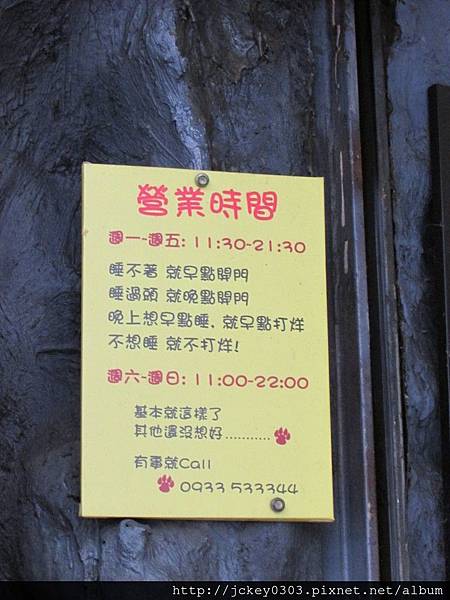 營業時間
週一~週五: 11:30~21:30
睡不著 就早點開門
睡過頭 就晚點開門
晚上想早點睡, 就早點打烊
不想睡 就不打烊!
週六~週日: 11:00~22:00
基本就這樣了
其他還沒想好...........
有事就Call
0933 533344
http://jckey0303.pixnet.net/album